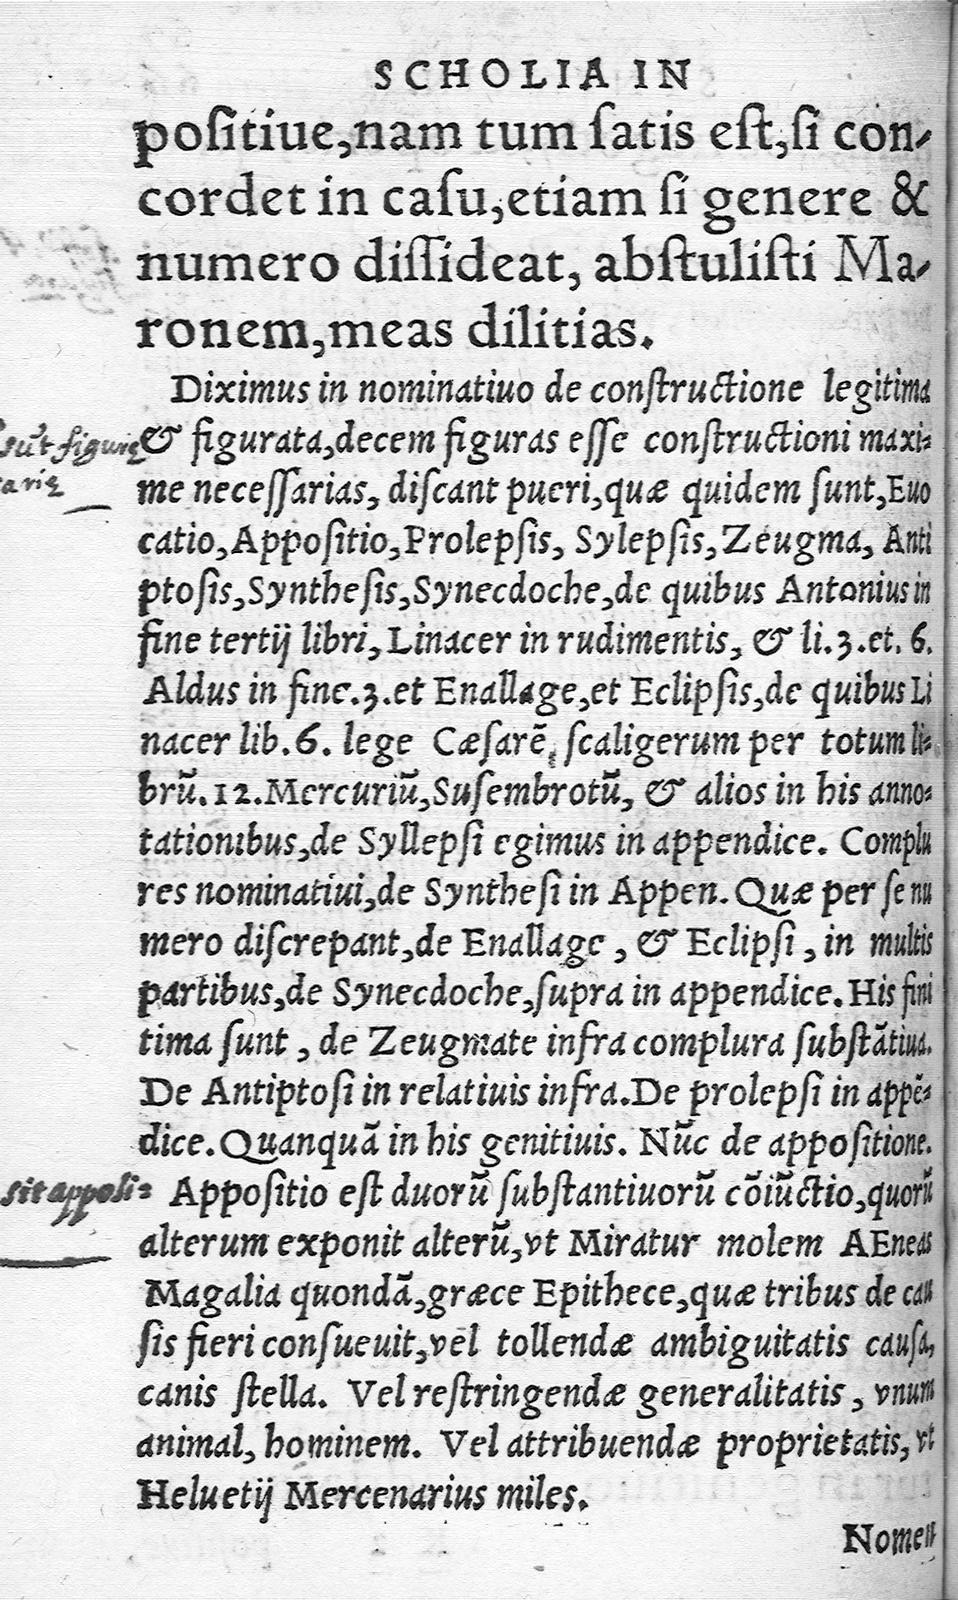 SCHOLIA IN
poſitiue,nam tum ſatis eſt,ſi con-
cordet in caſu,etiam ſi genere &
numero diſſideat, abſtuliſti Ma-
ronem,meas dilitias.
Diximus in nominatiuo de conſtructione legitima
& figurata,decem figuras eſſe conſtructioni maxi-
me neceſſarias, diſcant pueri,quæ quidem ſunt,Euo
catio,Appoſitio,Prolepſis, Sylepſis,Zeugma, Anti
ptoſis,Syntheſis,Synecdoche,de quibus Antonius in
fine tertij libri, Linacer in rudimentis, & li.3.et. 6.
Aldus in fine.3.et Enallage,et Eclipſis,de quibus Li
nacer lib.6. lege Cæſarē, ſcaligerum per totum li-
brū.12.Mercuriū,Suſembrotū, & alios in his anno-
tationibus,de Syllepſi egimus in appendice. Complu
res nominatiui,de Syntheſi in Appen. Quæ per ſe nu
mero diſcrepant,de Enallage , & Eclipſi , in multis
partibus,de Synecdoche,ſupra in appendice. His fini
tima ſunt , de Zeugmate infra complura ſubſtātiua.
De Antiptoſi in relatiuis infra.De prolepſi in appē-
dice. Quanquā in his genitiuis. Nūc de appoſitione.
ſit appoſi-
Appoſitio eſt duorū ſubſtantiuorū cōiūctio,quorū
alterum exponit alterū,vt Miratur molem AEneas
Magalia quondā,græce Epithece,quæ tribus de cau
ſis fieri conſueuit,vel tollendæ ambiguitatis cauſa,
canis ſtella. Vel reſtringendæ generalitatis , vnum
animal, hominem. Vel attribuendæ proprietatis, vt
Heluetij Mercenarius miles.
Nomen